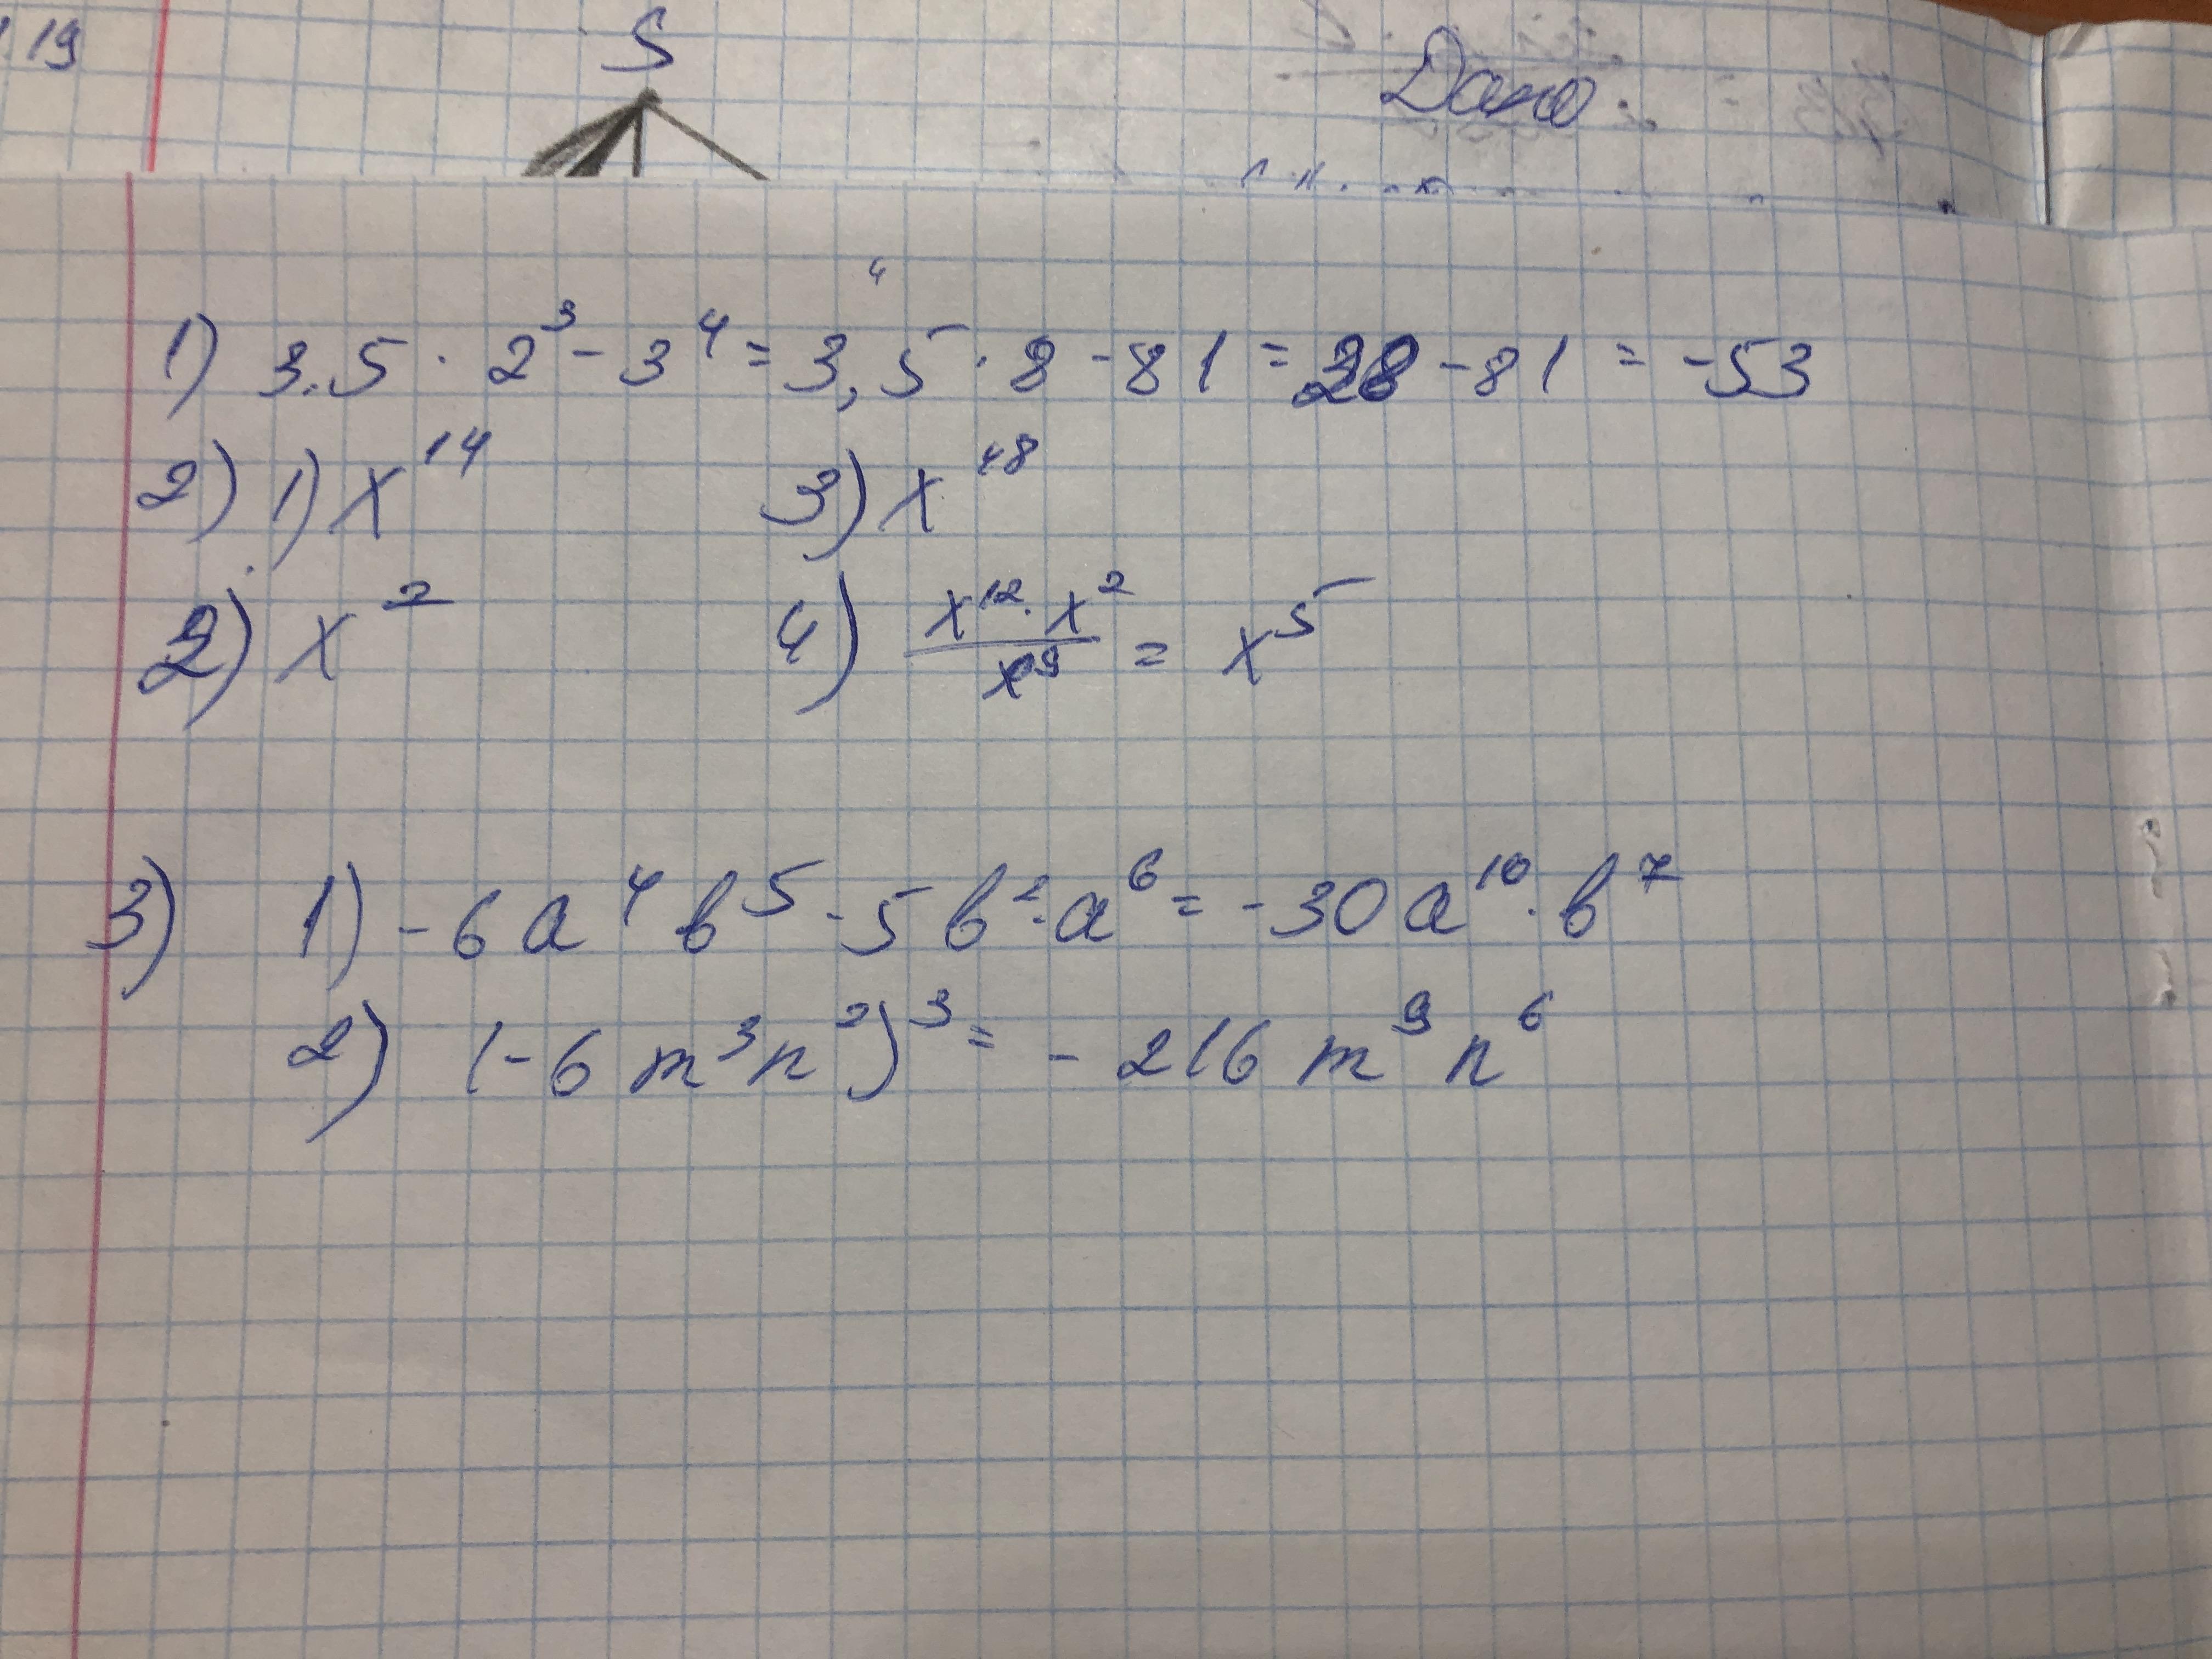 .19
S
Дано:
4
1) 3,5 · 2³ - 3⁴ = 3,5 · 8 - 81 = 28 - 81 = -53
2) 1) x¹⁴ 3) x¹⁸
2) x² 4) x¹² · x² / x⁹ = x⁵
3) 1) -6a⁴b⁵ · 5b² · a⁶ = -30a¹⁰ · b⁷
2) (-6m³n²)³ = -216m⁹n⁶